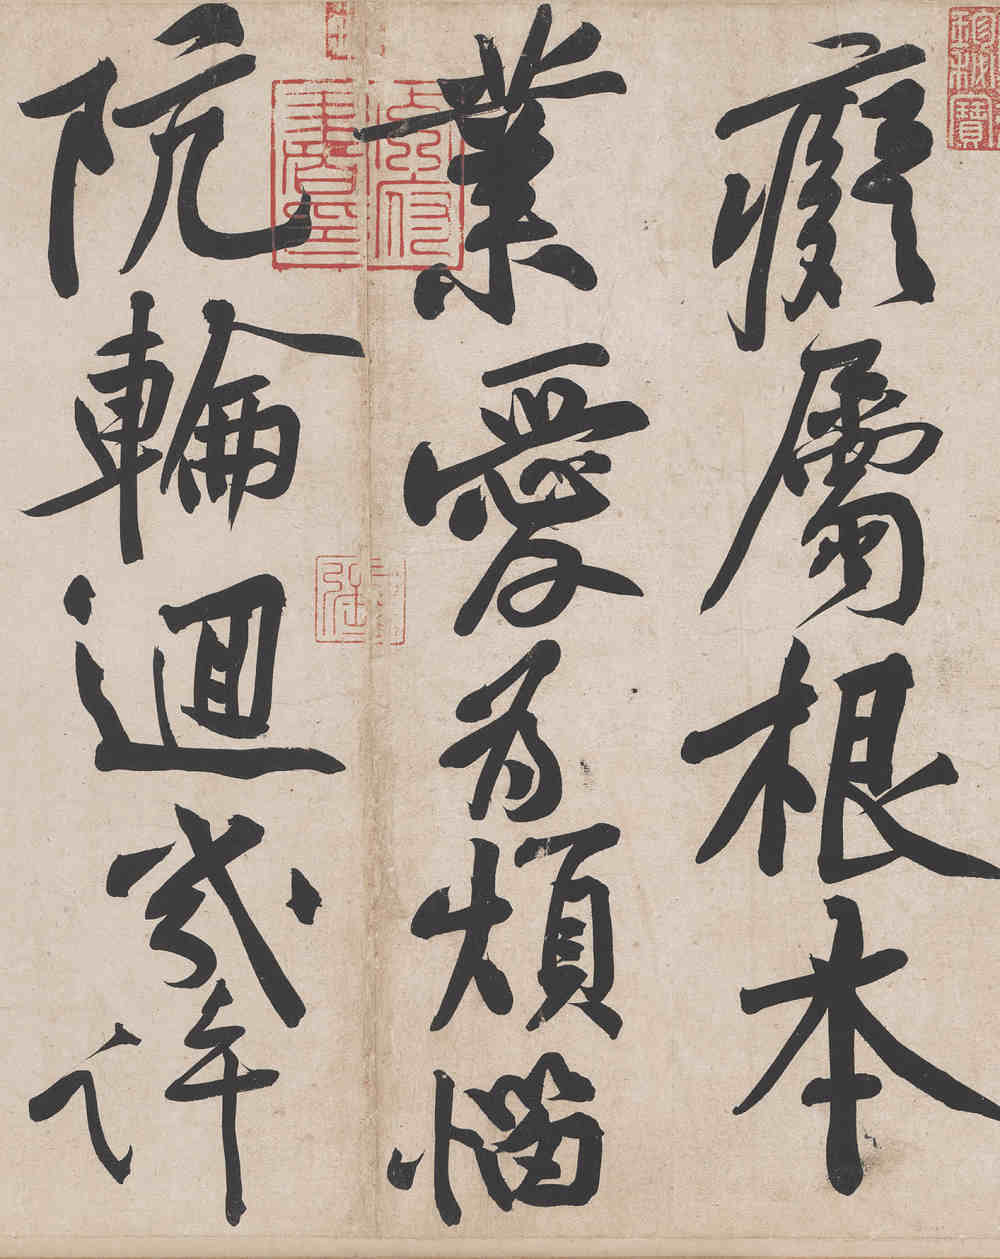 癡屬根本
業愛為煩惱
阬輪迴幾許